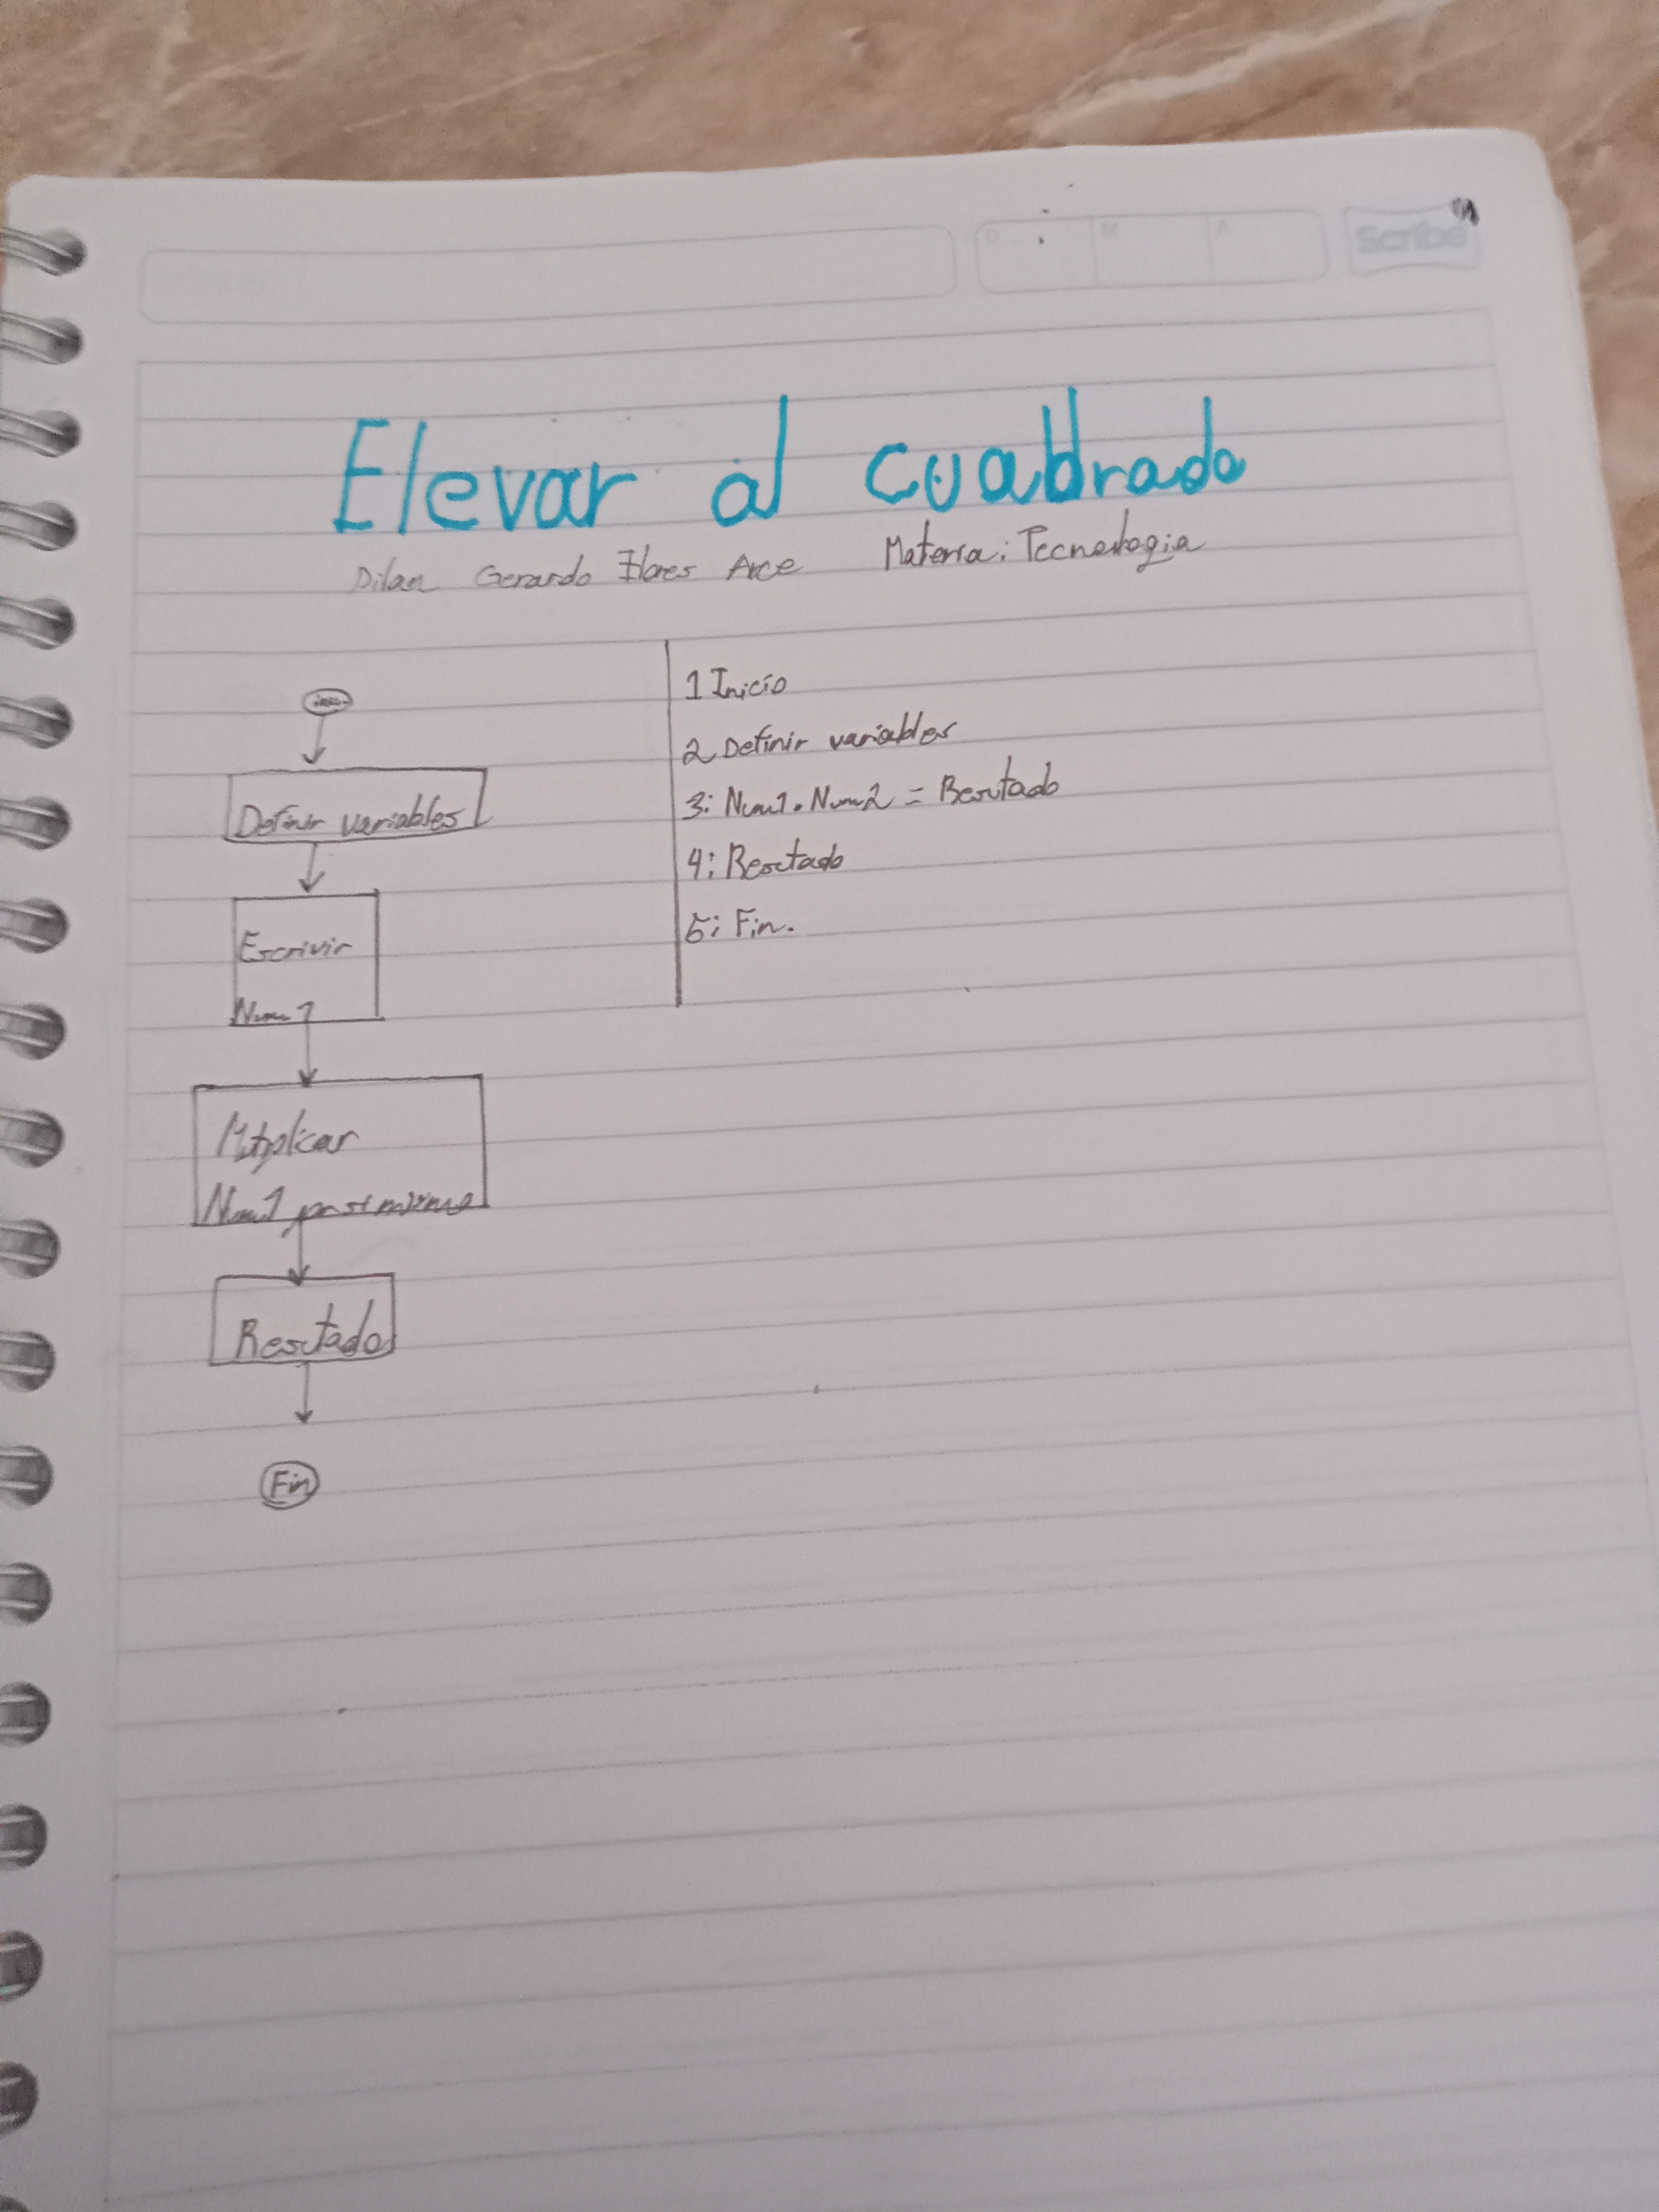 D M A
Scribe
Elevar al cuadrado
Dilan Gerardo Flores Arce Materia: Tecnología
Inicio
Definir variables
Escrivir
Num1
Mutiplicar
Num1 por si mismo
Resutado
Fin
1 Inicio
2 Definir variables
3: Num1 . Num2 = Resutado
4: Resutado
5: Fin.